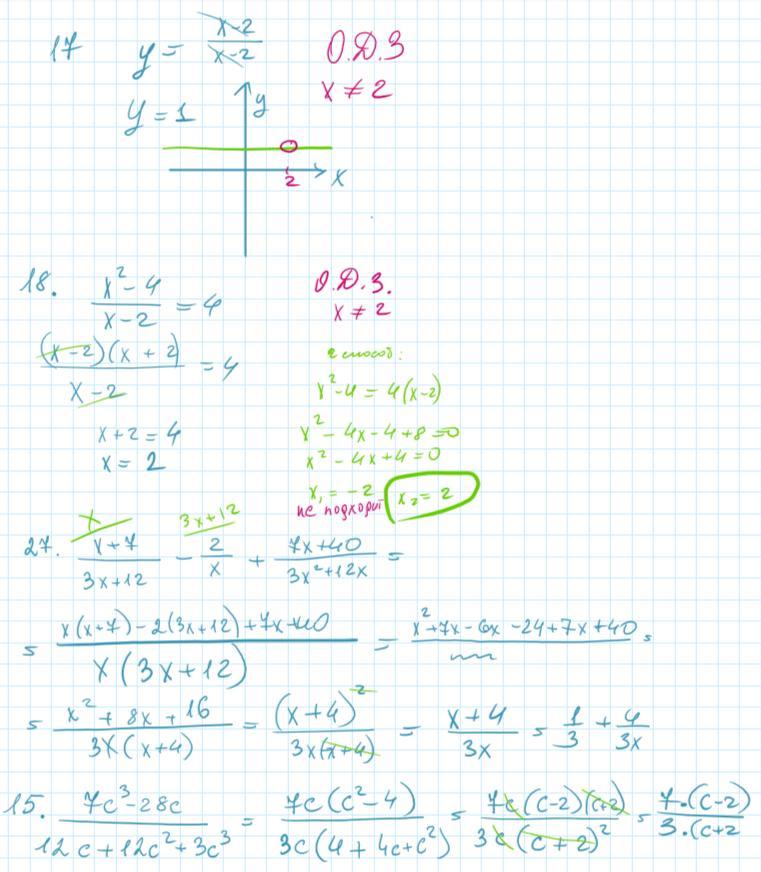 17 y = (x-2)/(x-2) О.Д.З
x ≠ 2
y = 1 y
x
2
18. (x²-4)/(x-2) = 4 О.Д.З.
x ≠ 2
((x-2)(x+2))/(x-2) = 4 2 способ:
x²-4 = 4(x-2)
x+2 = 4 x²-4x-4+8=0
x = 2 x²-4x+4=0
x₁ = -2 x₂ = 2
не подходит
x 3x+12
27. (x+7)/(3x+12) - 2/x + (7x+40)/(3x²+12x) =
= (x(x+7)-2(3x+12)+7x+40)/(x(3x+12)) = x²+7x-6x-24+7x+40 =
= (x²+8x+16)/(3x(x+4)) = (x+4)²/(3x(x+4)) = (x+4)/(3x) = 1/3 + 4/(3x)
15. (7c³-28c)/(12c+12c²+3c³) = (7c(c²-4))/(3c(4+4c+c²)) = (7c(c-2)(c+2))/(3c(c+2)²) = (7·(c-2))/(3·(c+2